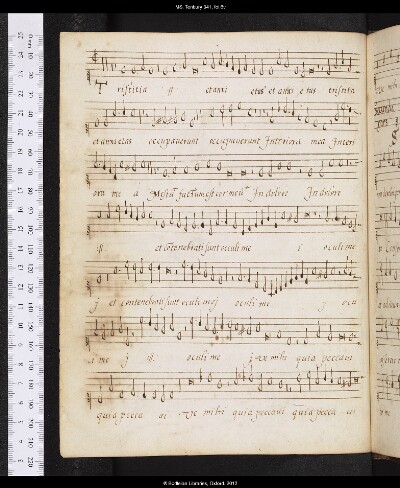 MS. Tenbury 341, fol.6v
Tristitia ij et anxi etas et anxi e tas tristitia
et anxi etas occupaverunt occupaverunt Interiora mea Interi
ora me a Mestū factum est cor meū In dolore In dolore
ij et contenebrati sunt oculi me i oculi me
j et contenebrati sunt oculi mej oculi me j ocu
li me j ij oculi me j Ve mihi quia peccavi
quia pecca vi Ve mihi quia peccavi quia pecca vi
© Bodleian Libraries, Oxford, 2012